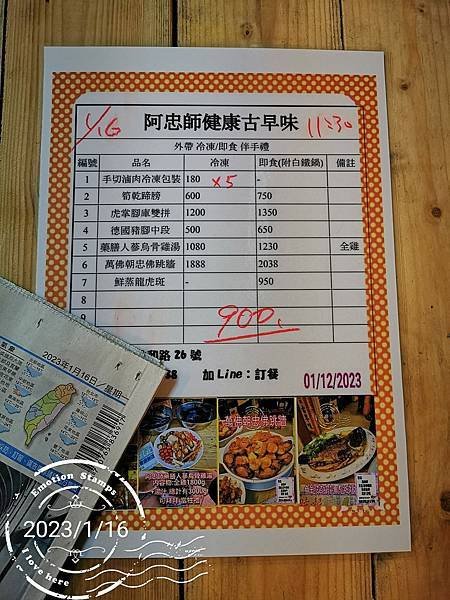 1/16 阿忠師健康古早味 11:30
外帶 冷凍/即食 伴手禮
編號 品名 冷凍 即食(附白鐵鍋) 備註
1 手切滷肉冷凍包裝 180 x5 -
2 筍乾蹄膀 600 750
3 虎掌腳庫雙拼 1200 1350
4 德國豬腳中段 500 650
5 藥膳人蔘烏骨雞湯 1080 1230 全雞
6 萬佛朝忠佛跳牆 1888 2038
7 鮮蒸龍虎斑 - 950
8
9
900.
和路 26 號
38 加 Line：訂餐
01/12/2023
2023年1月16日／星期一
萬佛朝忠佛跳牆
內容物:全雞1800g
Emotion Stamps
2023/1/16
I love here